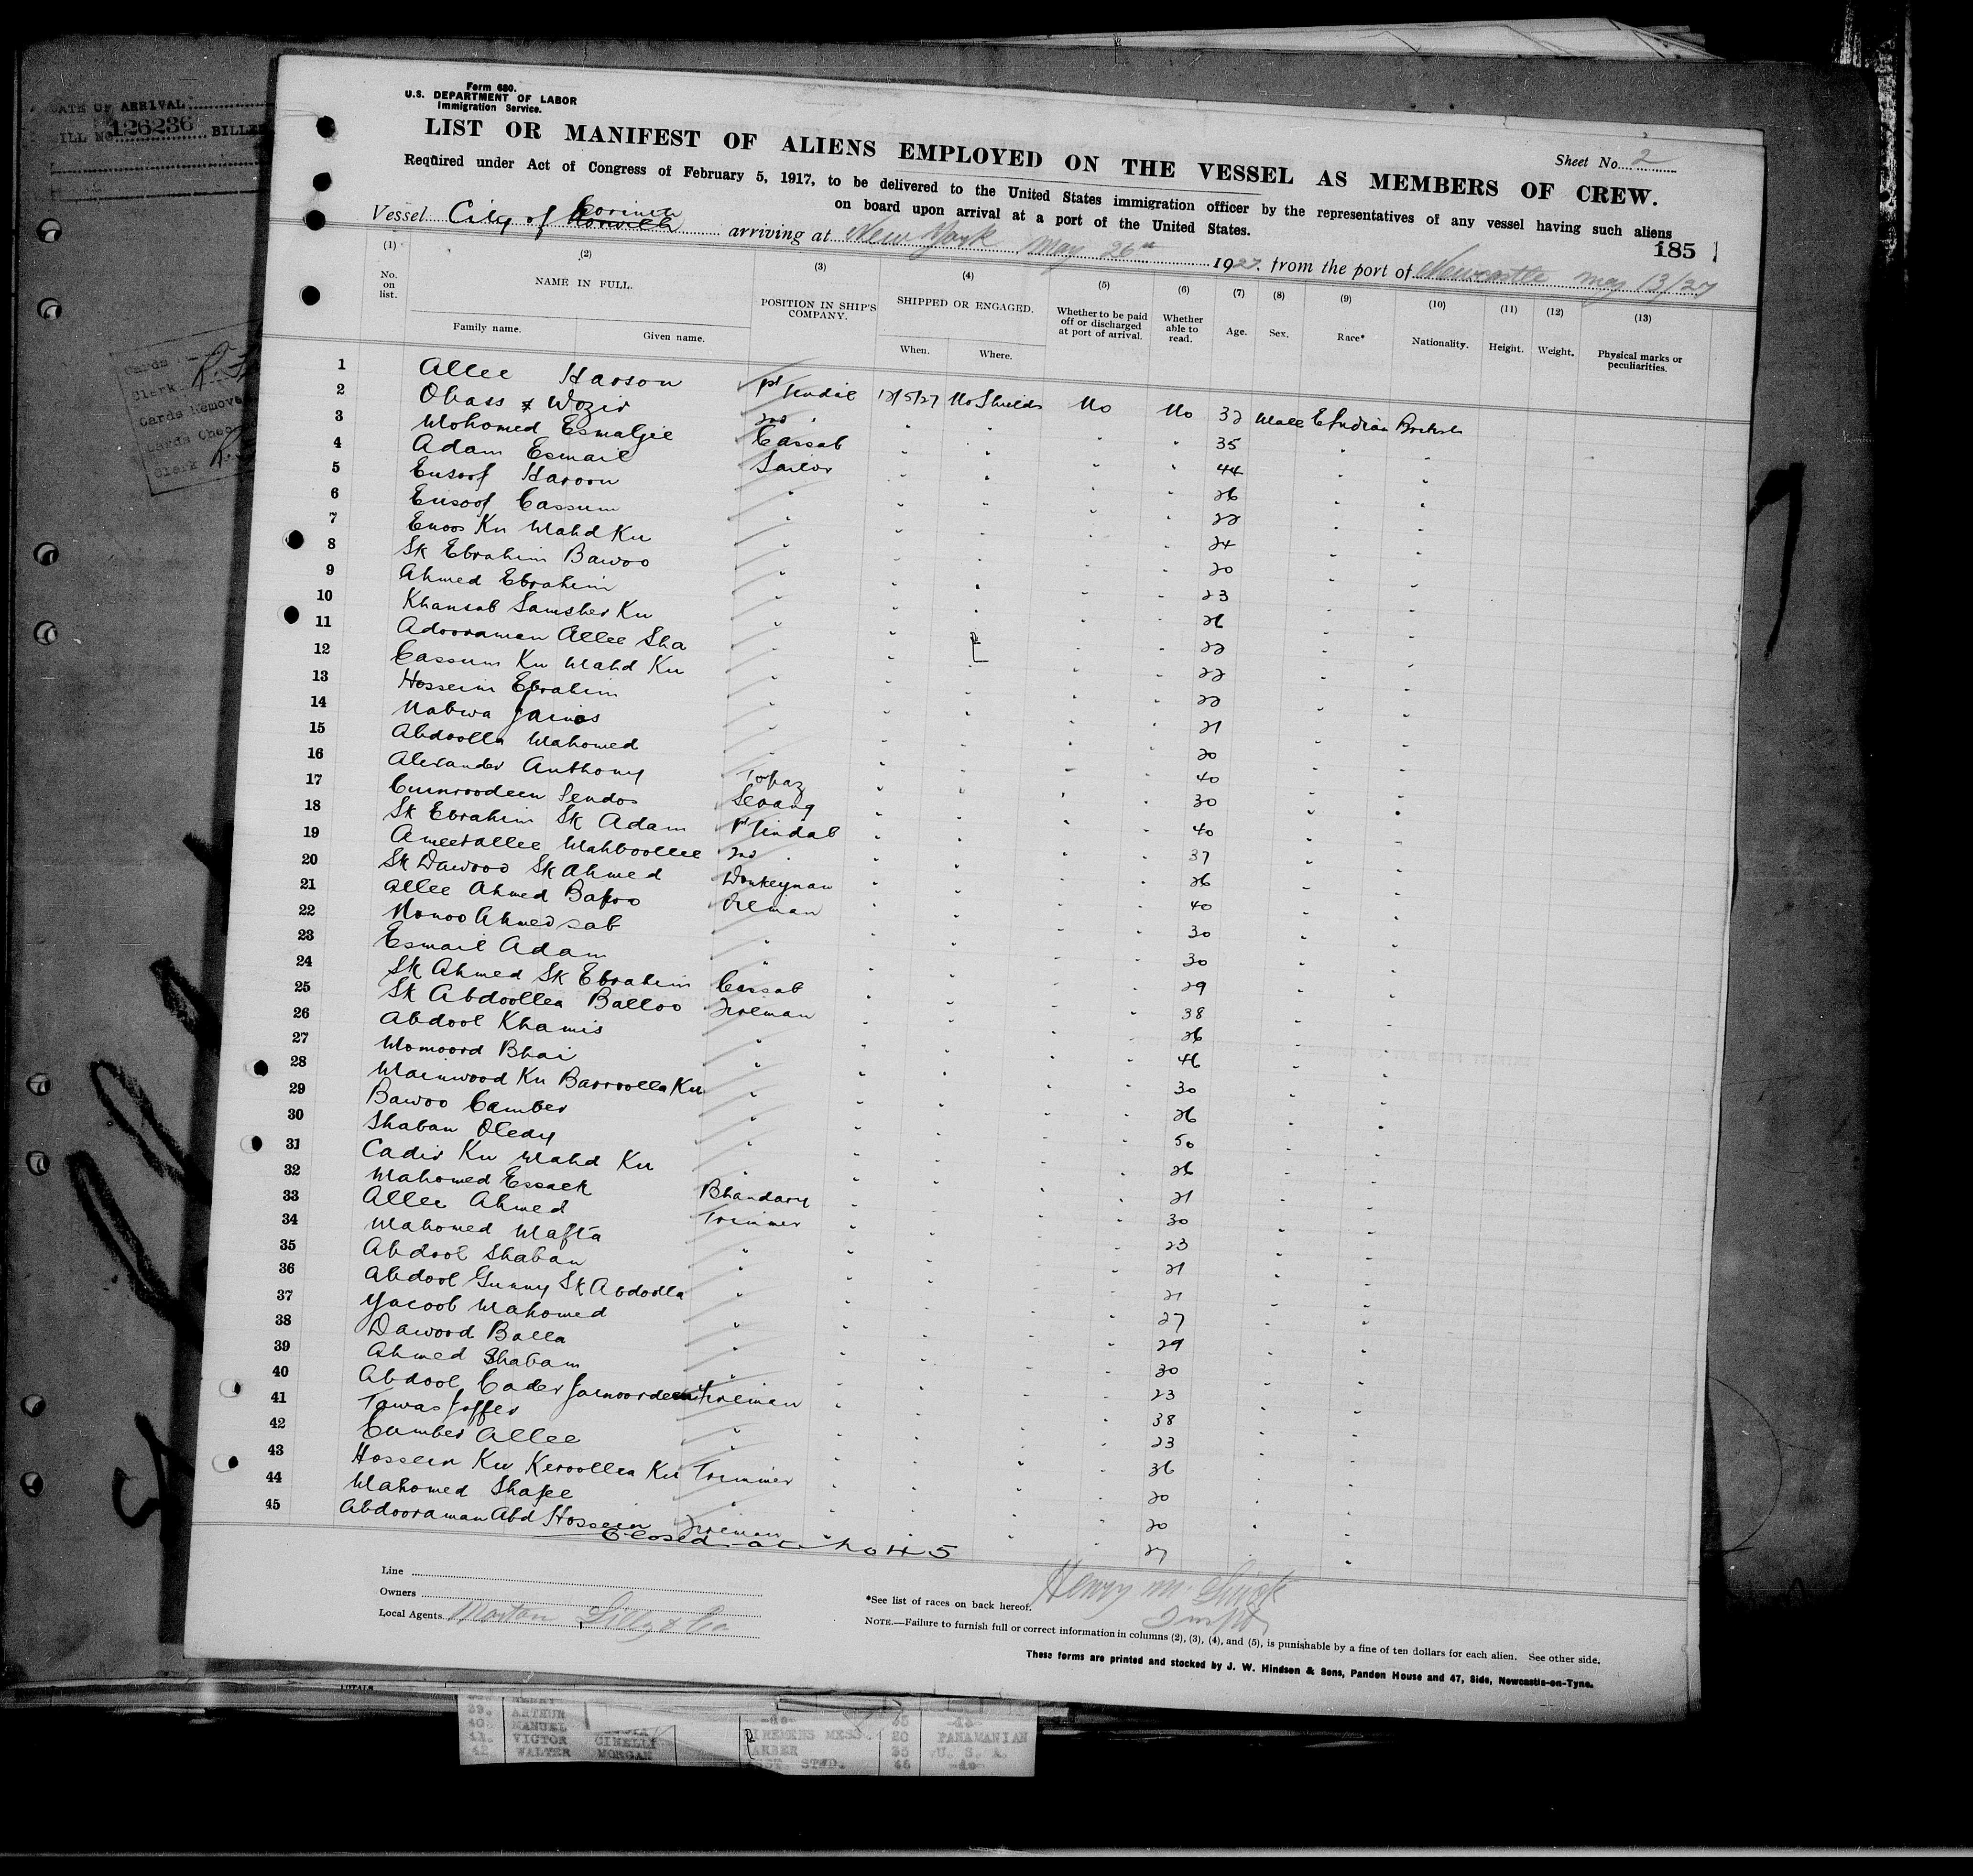 DATE OF ARRIVAL
BILL NO. 126236 BILLE
Form 680.
U.S. DEPARTMENT OF LABOR
Immigration Service.
LIST OR MANIFEST OF ALIENS EMPLOYED ON THE VESSEL AS MEMBERS OF CREW.
Sheet No. 2
Required under Act of Congress of February 5, 1917, to be delivered to the United States immigration officer by the representatives of any vessel having such aliens
on board upon arrival at a port of the United States.
185
Vessel City of Corinth arriving at New York May 26th 1927. from the port of Newcastle May 13/27
(1) (2) (3) (4) (5) (6) (7) (8) (9) (10) (11) (12) (13)
No. on list. NAME IN FULL. POSITION IN SHIP'S COMPANY. SHIPPED OR ENGAGED. Whether to be paid off or discharged at port of arrival. Whether able to read. Age. Sex. Race* Nationality. Height. Weight. Physical marks or peculiarities.
Family name. Given name. When. Where.
1 Allee Hasson 1st Tindal 12/5/27 No Shields No No 32 Male E Indian British
2 Obass & Wozir 2nd " " " " " 35 " "
3 Mohomed Esmaljee Cassab " " " " 44 " "
4 Adam Esmail Sailor " " " " 26 " "
5 Eusoof Haroon " " " " " 22 " "
6 Eusoof Cassum " " " " " 24 " "
7 Enoos Kn Mahd Kn " " " " " 20 " "
8 Sk Ebrahim Bawoo " " " " " 23 " "
9 Ahmed Ebrahim " " " " " 26 " "
10 Khansab Samsher Kn " " " " " 22 " "
11 Adooraman Allee Sha " " " " " 22 " "
12 Cassum Kn Mahd Kn " " " " " 22 " "
13 Hossein Ebrahim " " " " " 21 " "
14 Nabwa " " " " " 20 " "
15 Abdoolla Mahomed " " " " " 40 " "
16 Alexander Anthony Topaz " " " " 30 " "
17 Cumroodeen Serang " " " " 40 " "
18 Sk Ebrahim Sk Adam 1st Tindal " " " " 37 " "
19 Ameerallee Mahboollee 2nd " " " " " 26 " "
20 Sk Dawood Sk Ahmed Donkeyman " " " " 40 " "
21 Allee Ahmed Bapoo Oilman " " " " 30 " "
22 Nonoo Ahmedsab " " " " " 30 " "
23 Esmail Adam " " " " " 29 " "
24 Sk Ahmed Sk Ebrahim Cassab " " " " 38 " "
25 Sk Abdoollea Balloo Fireman " " " " 26 " "
26 Abdool Khamis " " " " " 46 " "
27 Momoord Bhai " " " " " 30 " "
28 Mainwood Kn Barroolla Kn " " " " " 26 " "
29 Bawoo Camber " " " " " 50 " "
30 Shaban Oledy " " " " " 26 " "
31 Cadir Kn Mahd Kn " " " " " 21 " "
32 Mahomed Essack Bhandary " " " " 30 " "
33 Allee Ahmed Trimmer " " " " 23 " "
34 Mahomed Mafta " " " " " 21 " "
35 Abdool Shaban " " " " " 21 " "
36 Abdool Gunny Sk Abdoolla " " " " " 27 " "
37 Yacoob Mahomed " " " " " 29 " "
38 Dawood Balla " " " " " 30 " "
39 Ahmed Shabam " " " " " 23 " "
40 Abdool Cader Jainoordeen Fireman " " " " 38 " "
41 Tawas Joffer " " " " " 23 " "
42 Cumber Allee " " " " " 36 " "
43 Hossein Kn Keroollea Kn Trimmer " " " " 20 " "
44 Mahomed Shafee " " " " " 20 " "
45 Abdooraman Abd Hossein Fireman " " " " 27 " "
Closed at No 45
Line
Owners
Local Agents Norton Lilly & Co
*See list of races on back hereof.
NOTE.—Failure to furnish full or correct information in columns (2), (3), (4), and (5), is punishable by a fine of ten dollars for each alien. See other side.
These forms are printed and stocked by J. W. Hindson & Sons, Pandon House and 47, Side, Newcastle-on-Tyne.
39. ARTHUR
40. MANUEL FIREMENS MESS. 20 PANAMANIAN
41. VICTOR CINELLI BARBER 35 U. S. A.
42. WALTER MORGAN ASST. STWD. 45 -do-